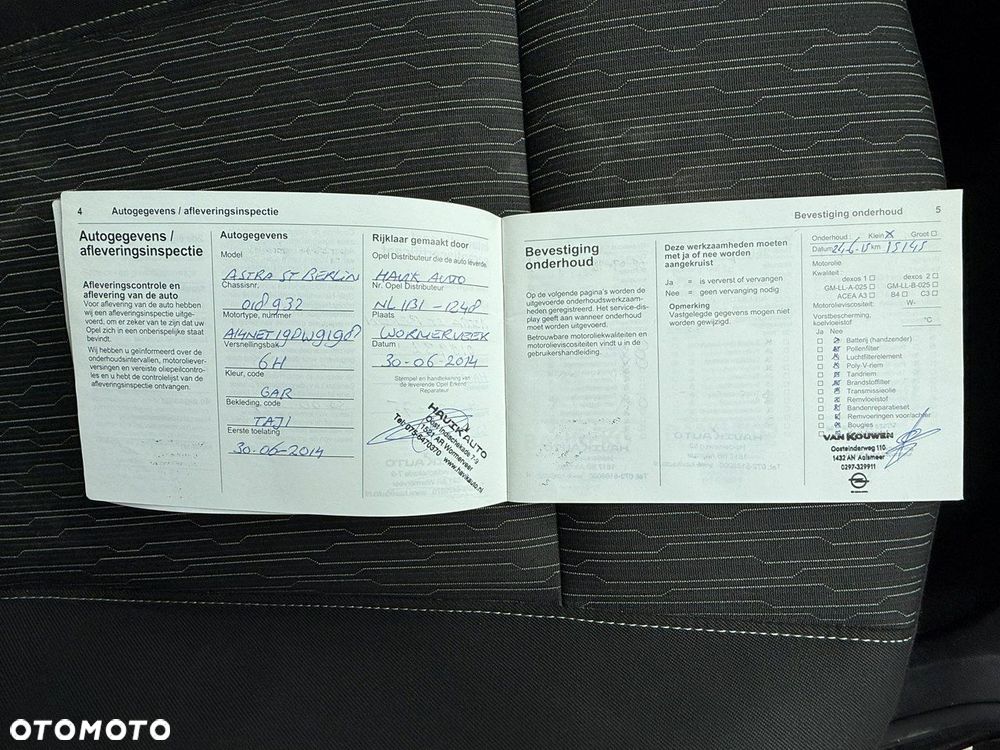 4 Autogegevens / afleveringsinspectie
Autogegevens /
afleveringsinspectie
Afleveringscontrole en
aflevering van de auto
Voor aflevering van de auto hebben
wij een afleveringsinspectie uitge-
voerd, om er zeker van te zijn dat uw
Opel zich in een onberispelijke staat
bevindt.
Wij hebben u geïnformeerd over de
onderhoudsintervallen, motoroliever-
versingen en vereiste oliepeilcontro-
les en u hebt de controlelijst van de
afleveringsinspectie ontvangen.
Autogegevens
Model
ASTRA ST BERLIN
Chassisnr.
018932
Motortype, nummer
Versnellingsbak
6H
Kleur, code
GAR
Bekleding, code
TAJI
Eerste toelating
30-06-2014
Rijklaar gemaakt door
Opel Distributeur die de auto leverde
HAVIK AUTO
Nr. Opel Distributeur
NL1B1-1248
Plaats
WORMERVEER
Datum
30-06-2014
Stempel en handtekening van
de leverende Opel Erkend
Reparateur
HAVIK AUTO
Oost Indischekade 7-9
1521 AR Wormerveer
Tel: 075-6470370 www.havikauto.nl
Bevestiging onderhoud 5
Bevestiging
onderhoud
Op de volgende pagina's worden de
uitgevoerde onderhoudswerkzaam-
heden geregistreerd. Het service-dis-
play geeft aan wanneer onderhoud
moet worden uitgevoerd.
Betrouwbare motoroliekwaliteiten en
motorolieviscositeiten vindt u in de
gebruikershandleiding.
Deze werkzaamheden moeten
met ja of nee worden
aangekruist
Ja = is ververst of vervangen
Nee = geen vervanging nodig
Opmerking
Vastgelegde gegevens mogen niet
worden gewijzigd.
Onderhoud: Klein X Groot
Datum 24.6.15 km 15145
Motorolie
Kwaliteit
dexos 1 dexos 2
GM-LL-A-025 GM-LL-B-025
ACEA A3 B4 C3
Motorolieviscositeit: W-
Vorstbescherming,
koelvloeistof °C
Ja Nee
Batterij (handzender)
Pollenfilter
Luchtfilterelement
Poly-V-riem
Tandriem
Brandstoffilter
Transmissieolie
Remvloeistof
Bandenreparatieset
Remvoeringen voor/achter
Bougies
VAN KOUWEN
Oosteinderweg 110
1432 AN Aalsmeer
0297-329911
OTOMOTO